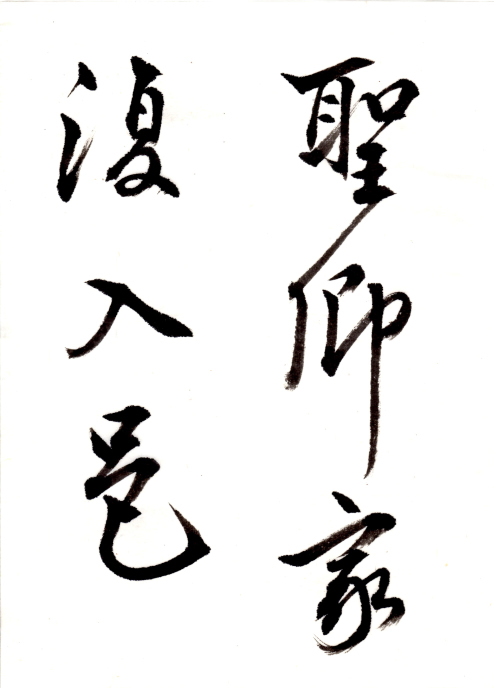 聖仰家
復入邑